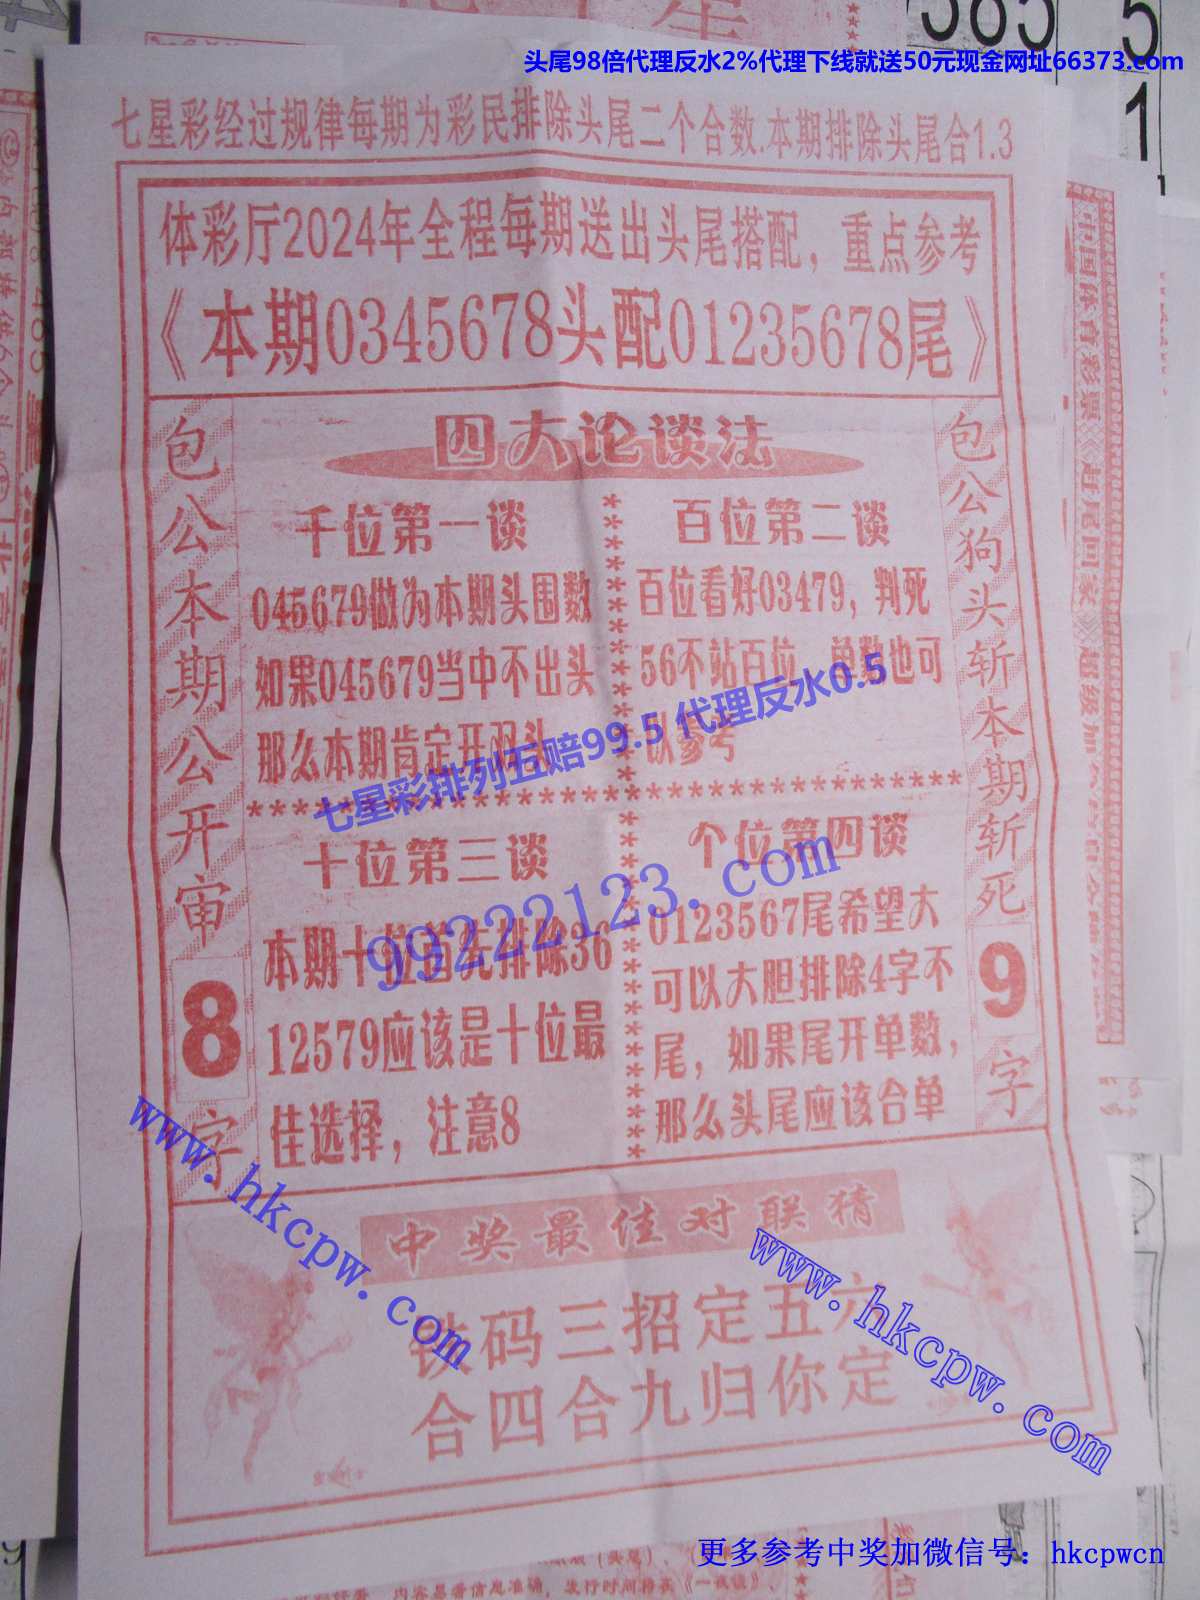 头尾98倍代理反水2%代理下线就送50元现金网址66373.com
七星彩经过规律每期为彩民排除头尾二个合数.本期排除头尾合1.3
体彩厅2024年全程每期送出头尾搭配，重点参考
《本期0345678头配01235678尾》
四大论谈法
包公本期公开审8字
千位第一谈
045679做为本期头围数
如果045679当中不出头
那么本期肯定开双头
百位第二谈
百位看好03479，判死
56不站百位，单数也可
以参考
七星彩排列五赔99.5 代理反水0.5
十位第三谈
本期十位首先排除36
12579应该是十位最
佳选择，注意8
个位第四谈
0123567尾希望大
可以大胆排除4字不
尾，如果尾开单数，
那么头尾应该合单
包公狗头斩本期斩死9字
99222123.com
www.hkcpw.com
www.hkcpw.com
中奖最佳对联猜
铁码三招定五六
合四合九归你定
更多参考中奖加微信号：hkcpwcn
385
5
1
中国体育彩票《好尾回家》超级